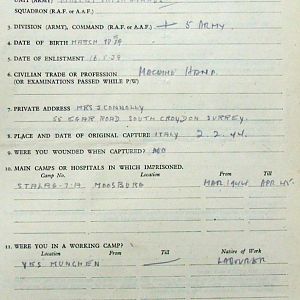 SQUADRON (R.A.F. or A.A.F.)
3. DIVISION (ARMY), COMMAND (R.A.F. or A.A.F.) + 5 ARMY.
4. DATE OF BIRTH MARCH 1919
5. DATE OF ENLISTMENT 16.5.39
6. CIVILIAN TRADE OR PROFESSION MACHINE HAND.
(OR EXAMINATIONS PASSED WHILE P/W)
7. PRIVATE ADDRESS MRS J CONNOLLY
55 EGAR ROAD SOUTH CROYDON SURREY.
8. PLACE AND DATE OF ORIGINAL CAPTURE ITALY 2.2.44.
9. WERE YOU WOUNDED WHEN CAPTURED? NO
10. MAIN CAMPS OR HOSPITALS IN WHICH IMPRISONED.
Camp No. Location From Till
STALAG-7-A MOOSBURG MAR 1944 APR 45
11. WERE YOU IN A WORKING CAMP?
Location From Till Nature of Work
YES MUNCHEN LABOURER